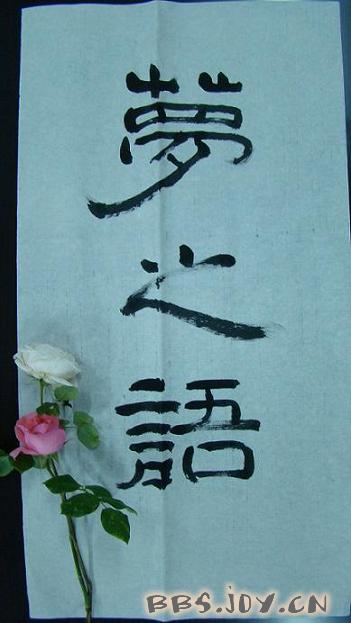 夢之語
BBS.JOY.CN